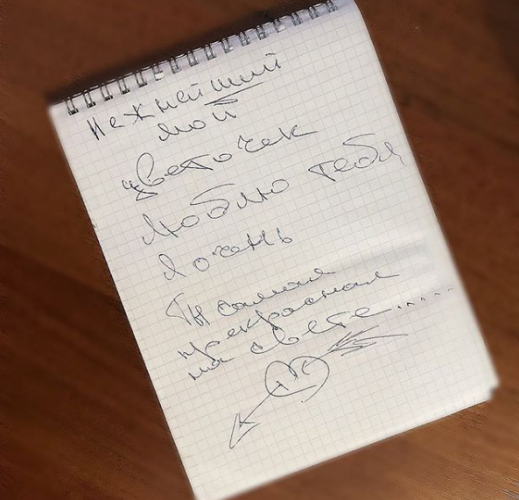 Нежнейший
мой
цветочек
Люблю тебя
я очень
Ты самая
прекрасная
на свете.....